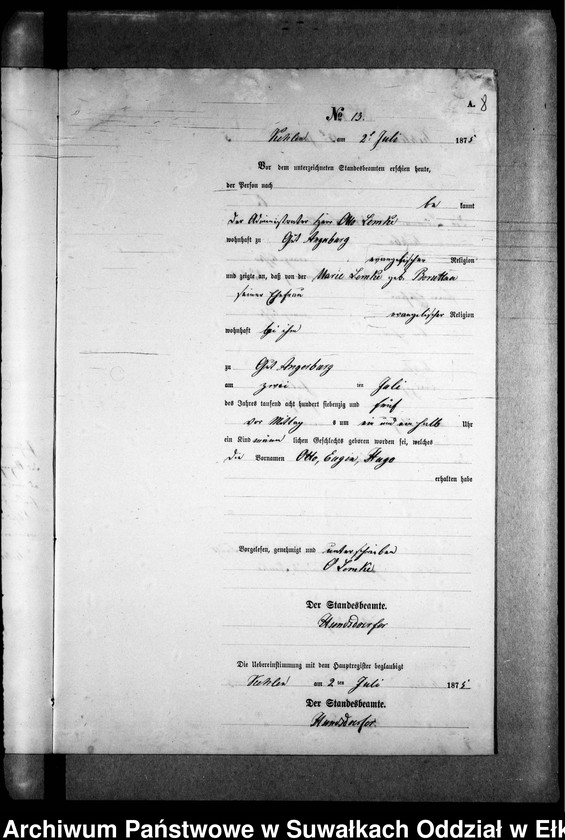 A. 8
№ 13.
Kehlen am 2t Juli 1875
Vor dem unterzeichneten Standesbeamten erschien heute,
der Person nach
be kannt
der Administrator Herr Otto Lemke
wohnhaft zu Gut Angerburg
evangelischer Religion
und zeigte an, daß von der Marie Lemke geb.
seiner Ehefrau
evangelischer Religion
wohnhaft bei ihm
zu Gut Angerburg
am zwei ten Juli
des Jahres tausend acht hundert siebenzig und fünf
vor Mittag s um ein und ein halb Uhr
ein Kind männ lichen Geschlechts geboren worden sei, welches
die Vornamen Otto, Eugen, Hugo
erhalten habe
Vorgelesen, genehmigt und unterschrieben
O Lemke
Der Standesbeamte.
Hundsdoerfer
Die Uebereinstimmung mit dem Hauptregister beglaubigt
Kehlen am 2ten Juli 1875
Der Standesbeamte.
Hundsdoerfer.
Archiwum Państwowe w Suwałkach Oddział w Ełk